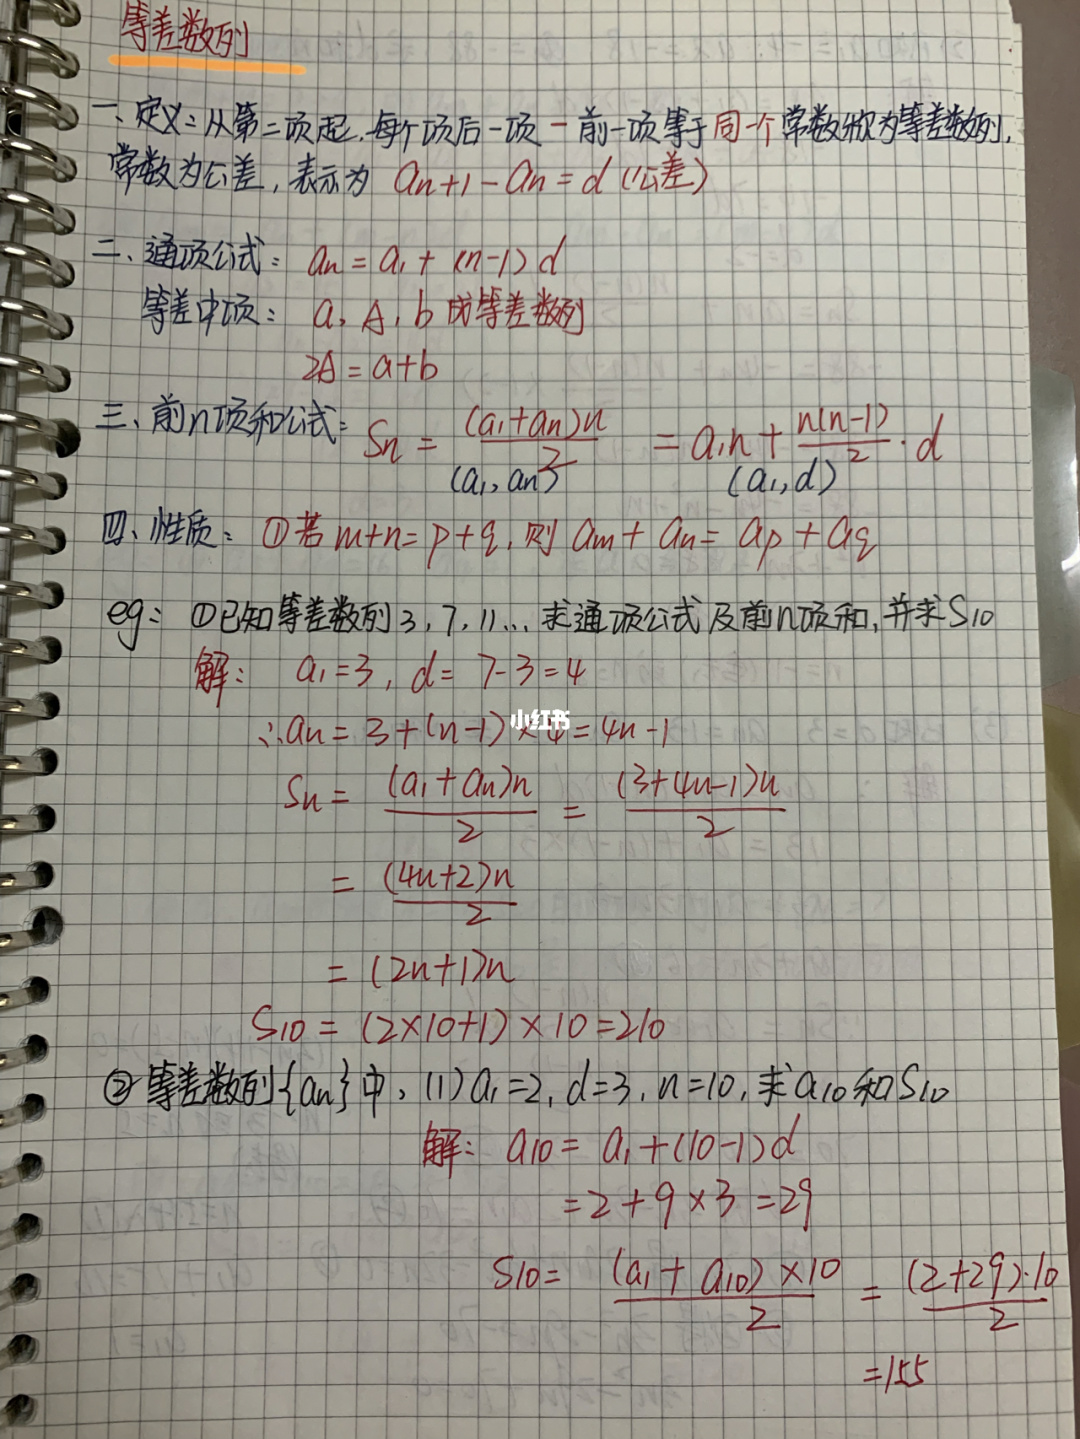 等差数列
一、定义:从第二项起,每个项后一项-前一项等于同一个常数称为等差数列,
常数为公差,表示为 an+1-an=d(公差)
二、通项公式: an=a1+(n-1)d
等差中项: a, A, b 成等差数列
2A=a+b
三、前n项和公式: Sn = (a1+an)n/2 = a1n + n(n-1)/2 · d
(a1, an) (a1, d)
四、性质: ①若m+n=p+q,则 am+an=ap+aq
eg: ①已知等差数列3, 7, 11... 求通项公式及前n项和,并求S10
解: a1=3, d=7-3=4
∴an=3+(n-1)×4=4n-1
小红书
Sn = (a1+an)n/2 = (3+4n-1)n/2
= (4n+2)n/2
= (2n+1)n
S10=(2×10+1)×10=210
②等差数列{an}中, (1)a1=2, d=3, n=10, 求a10和S10
解: a10=a1+(10-1)d
=2+9×3=29
S10= (a1+a10)×10/2 = (2+29)·10/2
=155